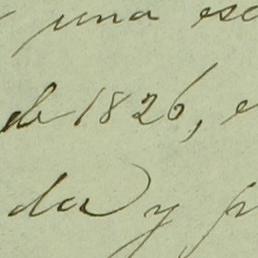 una esc
de 1826, e
da y p